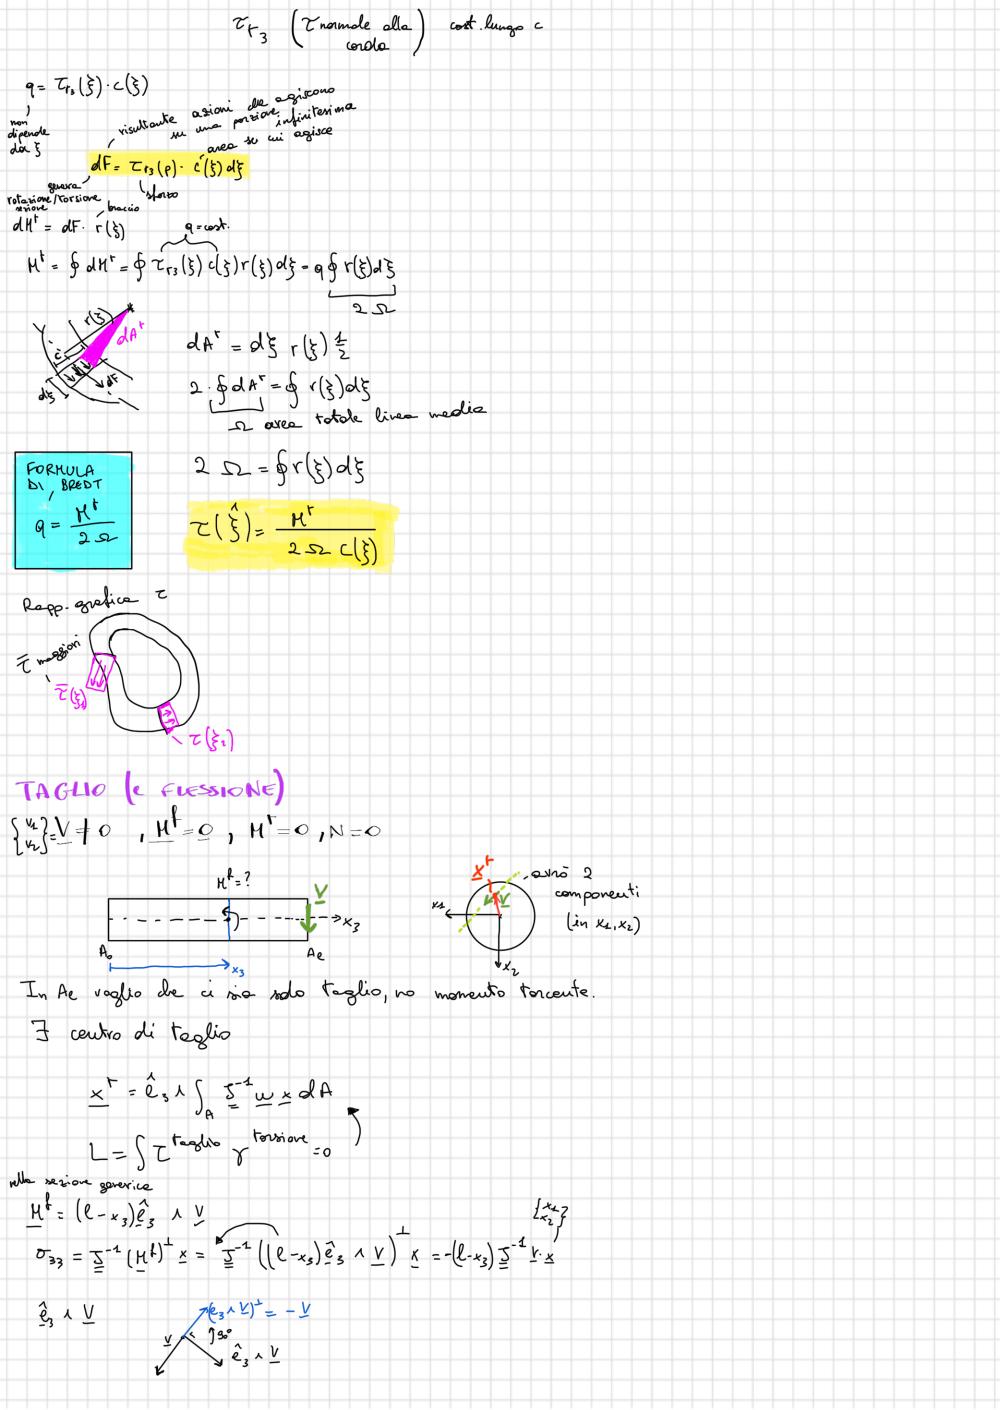 τ_r3 (τ normale alla corda) cost. lungo c
q = τ_r3(ξ)·c(ξ)
non dipende da ξ
risultante azioni che agiscono su una porzione infinitesima
area su cui agisce
dF = τ_r3(p)· c(ξ)dξ
genera rotazione/torsione sezione
sforzo
braccio
dM^t = dF· r(ξ)
q=cost.
M^t = ∮ dM^t = ∮ τ_r3(ξ) c(ξ) r(ξ) dξ = q ∮ r(ξ)dξ
2 Ω
r(ξ)
dA^r
c
dξ
dF
dA^r = dξ r(ξ) 1/2
2·∮ dA^r = ∮ r(ξ)dξ
Ω area totale linea media
2 Ω = ∮ r(ξ)dξ
FORMULA
DI BREDT
q = M^t / 2Ω
τ(ξ̂) = M^t / 2Ω c(ξ)
Rapp. grafica τ
τ̄ maggiori
τ̄(ξ1)
τ(ξ2)
TAGLIO (e FLESSIONE)
{V1 V2} = V ≠ 0 , M^f = 0 , M^t = 0 , N = 0
M^f = ?
V
x3
A0
Ae
x3
x^t
V
x1
x2
avrò 2
componenti
(in x1, x2)
In Ae voglio che ci sia solo taglio, no momento torcente.
∃ centro di taglio
x^t = ê3 ∧ ∫_A J^-1 ω x dA
L = ∫ τ^taglio γ^torsione = 0
nella sezione generica
M^f = (l-x3)ê3 ∧ V
{x1 x2}
σ33 = J^-1 (M^f)^⊥ x = J^-1 ((l-x3)ê3 ∧ V)^⊥ x = -(l-x3) J^-1 V·x
ê3 ∧ V
(e3 ∧ V)^⊥ = - V
V
90°
ê3 ∧ V